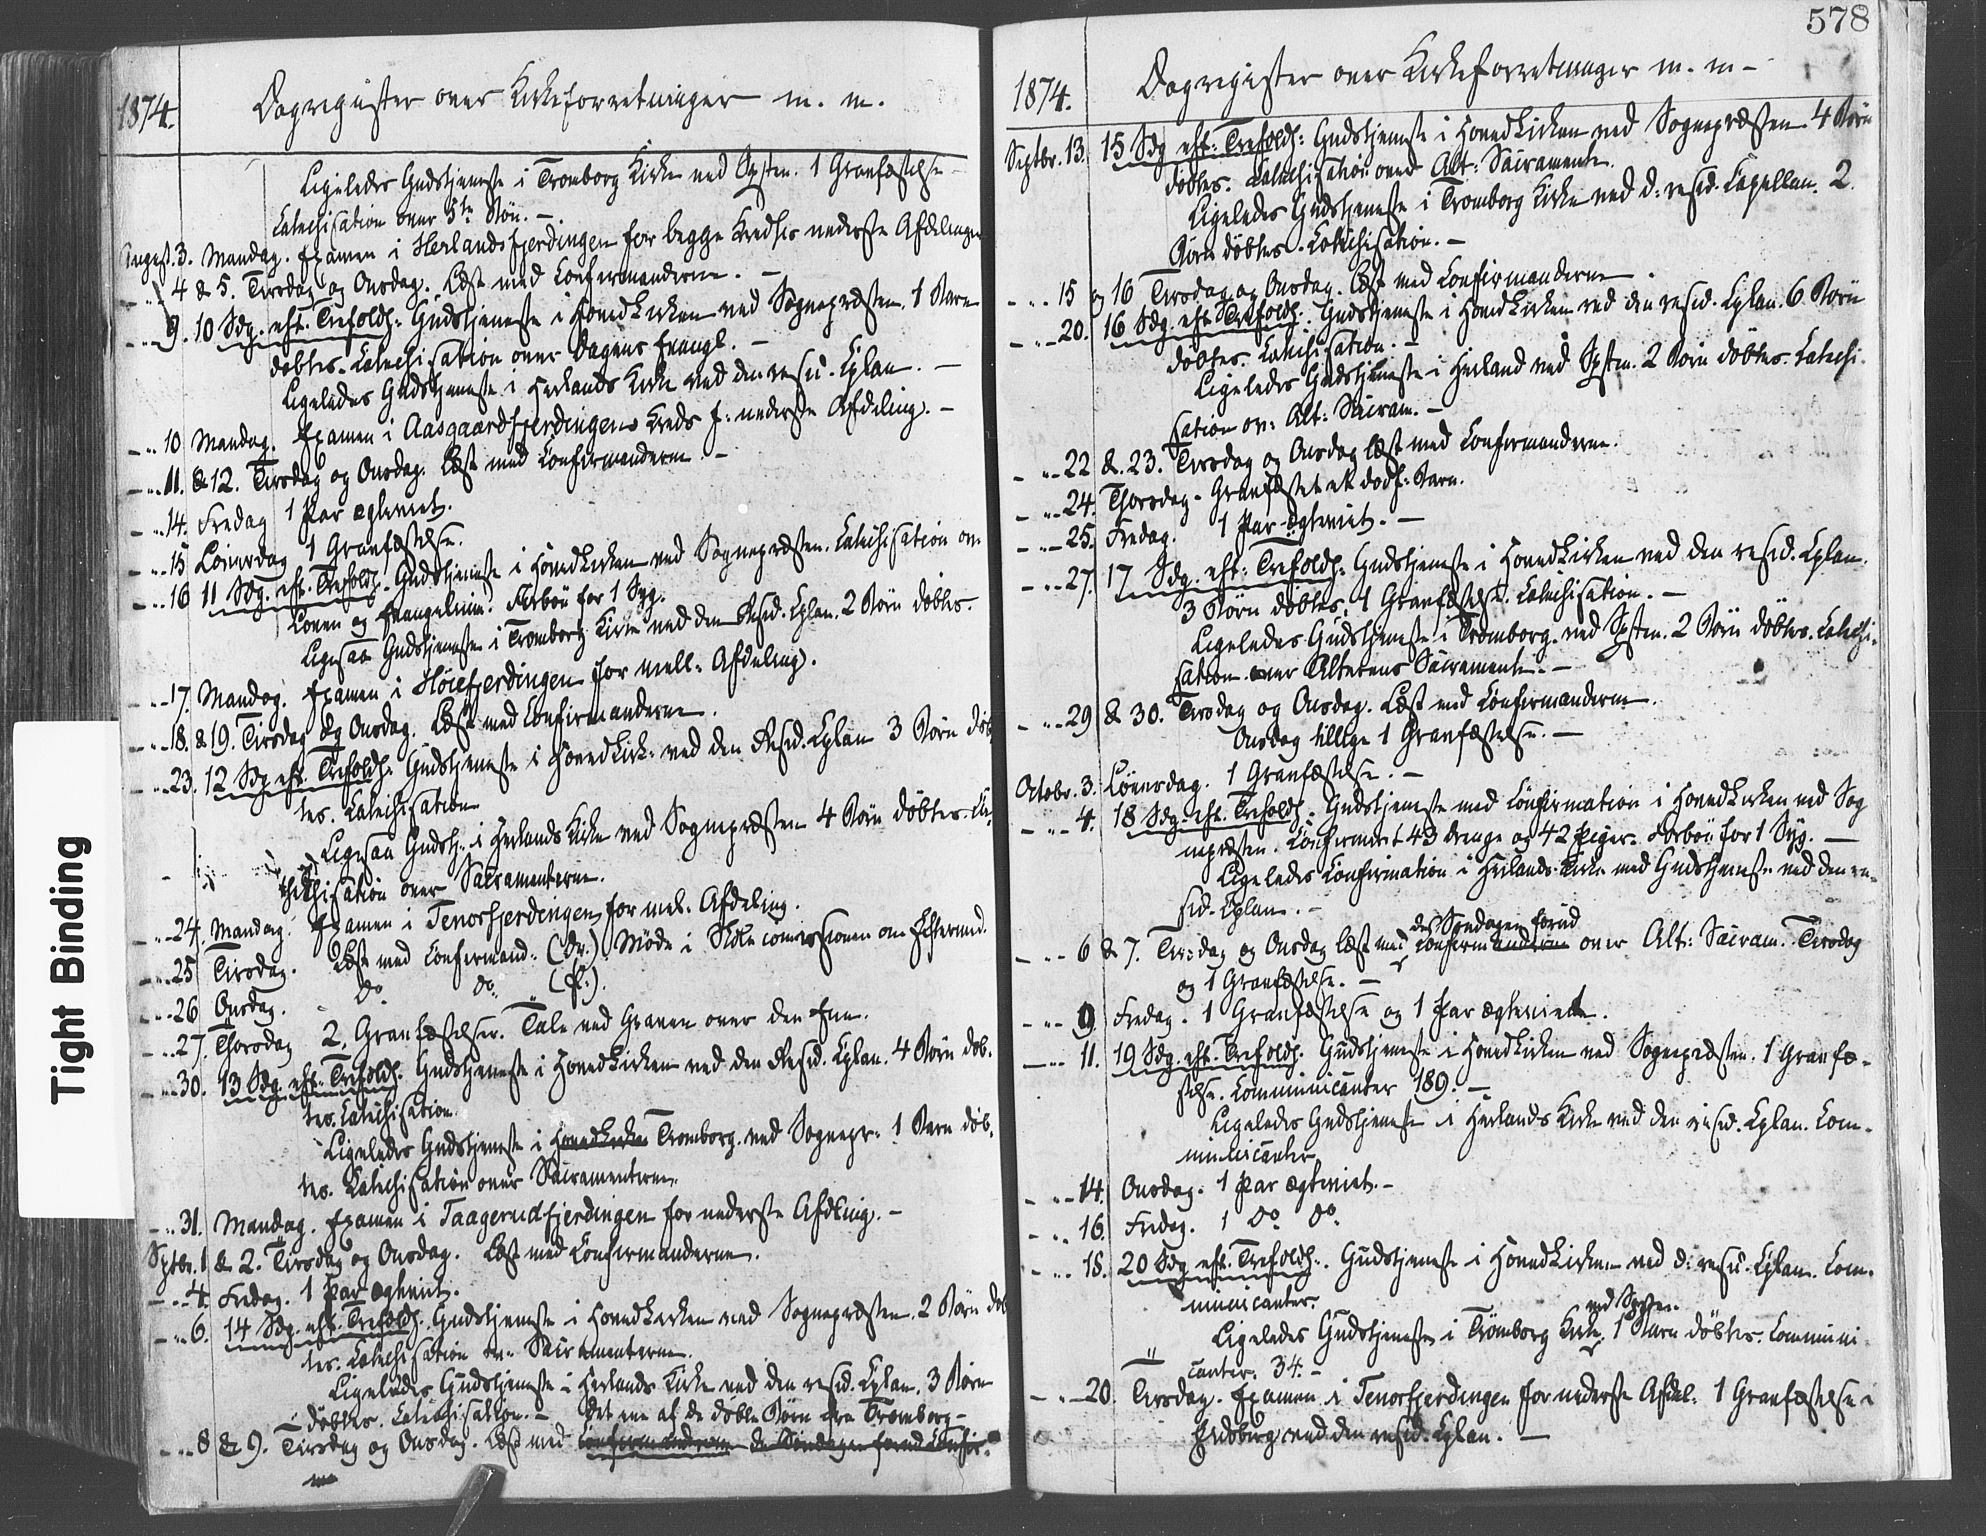 1874.
Dagregister over Kirkeforretninger m. m.
Ligeledes Gudstjeneste i Tromborg Kirke ved Spsten. 1 Gravfæstelse
Catechisation over 5te Bøn. –
August. 3. Mandag. Examen i Herlandsfjerdingen for begge Kredses nederste Afdelinger
– „ 4 & 5. Tirsdag og Onsdag. Læst med Confirmanderne. –
– „ 9. 10 Sdg. eft. Trefoldh: Gudstjeneste i Hovedkirken ved Sognepræsten. 1 Barn
døbtes. Catechisation over Dagens Evangl. –
Ligeledes Gudstjeneste i Herlands Kirke ved den resid. Cplan. –
– „ 10 Mandag. Examen i Aasgaardfjerdingens Kreds f: nederste Afdeling. –
– „ 11. & 12. Tirsdag og Onsdag. Læst med Confirmanderne. –
– „ 14. Fredag 1 Par ægteviet.
– „ 15 Løverdag 1 Gravfæstelse.
– „ 16 11 Sdg. eft. Trefoldh. Gudstjeneste i Hovedkirken ved Sognepræsten. Catechisation ov.
Loven og Evangelium. Forbøn for 1 Syg.
Ligesaa Gudstjeneste i Tromborg Kirke ved den Resid. Cplan. 2 Børn døbtes.
– „ 17. Mandag. Examen i Høiefjerdingen for mell: Afdeling.
– „ 18. & 19. Tirsdag og Onsdag. Læst med Confirmanderne.
– „ 23. 12 Sdg eft. Trefoldh. Gudstjeneste i Hovedkirk: ved den Resid. Cplan 3 Børn døb
tes. Catechisation
Ligesaa Gudstj: i Herlands Kirke ved Sognepræsten 4 Børn døbtes. Ca:
thechisation over Sacramenterne.
– „ 24. Mandag. Examen i Tenorfjerdingen for mel. Afdeling.
– „ 25 Tirsdag. Læst med Confirmand: (Dr.) Møde i Skolecomissionen om Eftermd.
– „ 26 Onsdag. Do Do (P.).
– „ 27. Thorsdag 2 Gravfæstelser. Tale ved Graven over den Ene.
– „ 30. 13 Sdg. eft. Trefoldh. Gudstjeneste i Hovedkirken ved den Resid. Cplan. 4 Børn døb.
tes. Catechisation.
Ligeledes Gudstjeneste i Hovedkirken Tromborg. ved Sognepr: 1 Barn døb.
tes. Catechisation over Sacramenterne.
– „ 31. Mandag. Examen i Taagerudfjerdingen for nederste Afdling. –
Sptbr. 1 & 2. Tirsdag og Onsdag. Læst med Confirmanderne.
– „ 4. Fredag. 1 Par ægteviet.
– „ 6. 14 Sdg. eft. Trefoldh. Gudstjeneste i Hovedkirken ved Sognepræsten. 2 Børn døb
tes. Catechisation ov. Sacramenterne.
Ligeledes Gudstjeneste i Herlands Kirke ved den resid. Cplan. 3 Børn
døbtes. Catechisation. – Det ene af de døbte Børn fra Tromborg –
– „ 8 & 9. Tirsdag og Onsdag. Læst med Confirmanderne de Søndagen forud Confir.
578
1874.
Dagregister over Kirkeforretninger m. m –
Septbr. 13. 15 Sdg eft: Trefoldh: Gudstjeneste i Hovedkirken ved Sognepræsten. 4 Børn
døbtes. Catechisation over Alt: Sacramente.
Ligeledes Gudstjeneste i Tromborg Kirke ved d: resid. Capellan. 2
Børn døbtes. Catechisation. –
– „ 15 og 16 Tirsdag og Onsdag. læst med Confirmanderne
– „ 20. 16 Sdg. eft. Trefoldh: Gudstjeneste i Hovedkirken ved den resid. Cplan. 6 Børn
døbtes. Catechisation. –
Ligeledes Gudstjeneste i Herland ved Spsten. 2 Børn døbtes. Catechi-
sation ov: Alt: Sacram. –
– „ 22 & 23. Tirsdag og Onsdag læst med Confirmanderne.
– „ 24. Thorsdag. Gravfæstet et dødf: Barn.
– „ 25. Fredag. 1 Par ægteviet. –
– „ 27. 17 Sdg. eft: Trefoldh: Gudstjeneste i Hovedkirken ved den resid. Cplan.
3 Børn døbtes. 1 Gravfæstelse. Catechisation. –
Ligeledes Gudstjeneste i Tromborg. ved Spsten. 2 Børn døbtes. Catechi-
sation over Alterens Sacramente. –
– „ 29 & 30. Tirsdag og Onsdag. Læst med Confirmanderne.
Onsdag tillige 1 Gravfæstelse. –
Octobr. 3. Løverdag. 1 Gravfæstelse. –
– „ 4. 18 Sdg. eft. Trefoldh: Gudstjeneste med Confirmation i Hovedkirken ved Sog
nepræsten. Confirmeret 43 Drenge og 42 Piger. Forbøn for 1 Syg. –
Ligeledes Confirmation i Herlands Kirke med Gudstjeneste ved den re-
sid. Cplan. –
de Søndagen forud
– „ 6 & 7. Tirsdag og Onsdag læst med Confirmanderne over Alt: Sacram. Tirsdag
og 1 Gravfæstelse. –
– „ 9 Fredag. 1 Gravfæstelse og 1 Par ægteviet.
– „ 11. 19 Sdg. eft. Trefoldh. Gudstjeneste i Hovedkirken ved Sognepræsten. 1 Gravfæ-
stelse. Communicanter 189. –
Ligeledes Gudstjeneste i Herlands Kirke ved den resid. Cplan. Com-
municanter
– „ 14. Onsdag. 1 Par ægteviet. –
– „ 16. Fredag. 1 Do Do
– „ 18. 20 Sdg eft. Trefoldh: Gudstjeneste i Hovedkirken ved d: resid. Cplan. Com.
municanter.
ved Spsten.
Ligeledes Gudstjeneste i Tromborg Kirke, 1 Barn døbtes. Communi-
canter. 34. –
– „ 20. Tirsdag. Examen i Tenorfjerdingen for nederste Afdel: 1 Gravfæstelse i
Eidsberg ved den resid. Cplan. –
Tight Binding